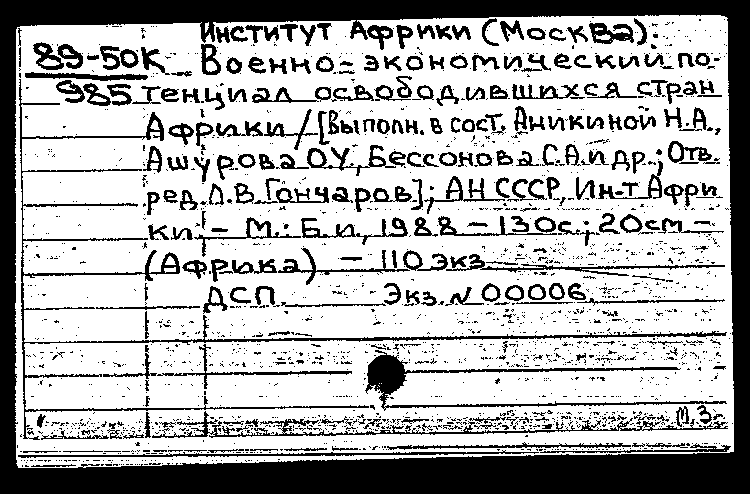 Институт Африки (Москва).
89-50К Военно-экономический по-
985 тенциал освободившихся стран
Африки / [Выполн. в сост. Аникиной Н.А.,
Ашурова О.У., Бессонова С.А. и др.; Отв.
ред. Л.В. Гончаров]; АН СССР, Ин-т Афри
ки. - М.: Б.и., 1988 - 130с.; 20см -
(Африка). - 110 экз
ДСП. Экз. N 00006.
М.З.